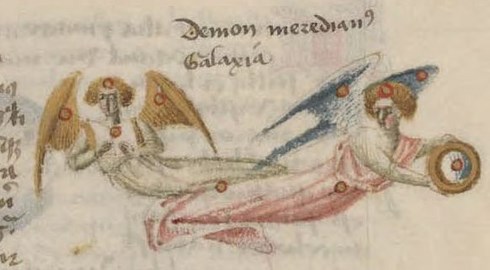 Demon meredian⁹
Galaxia